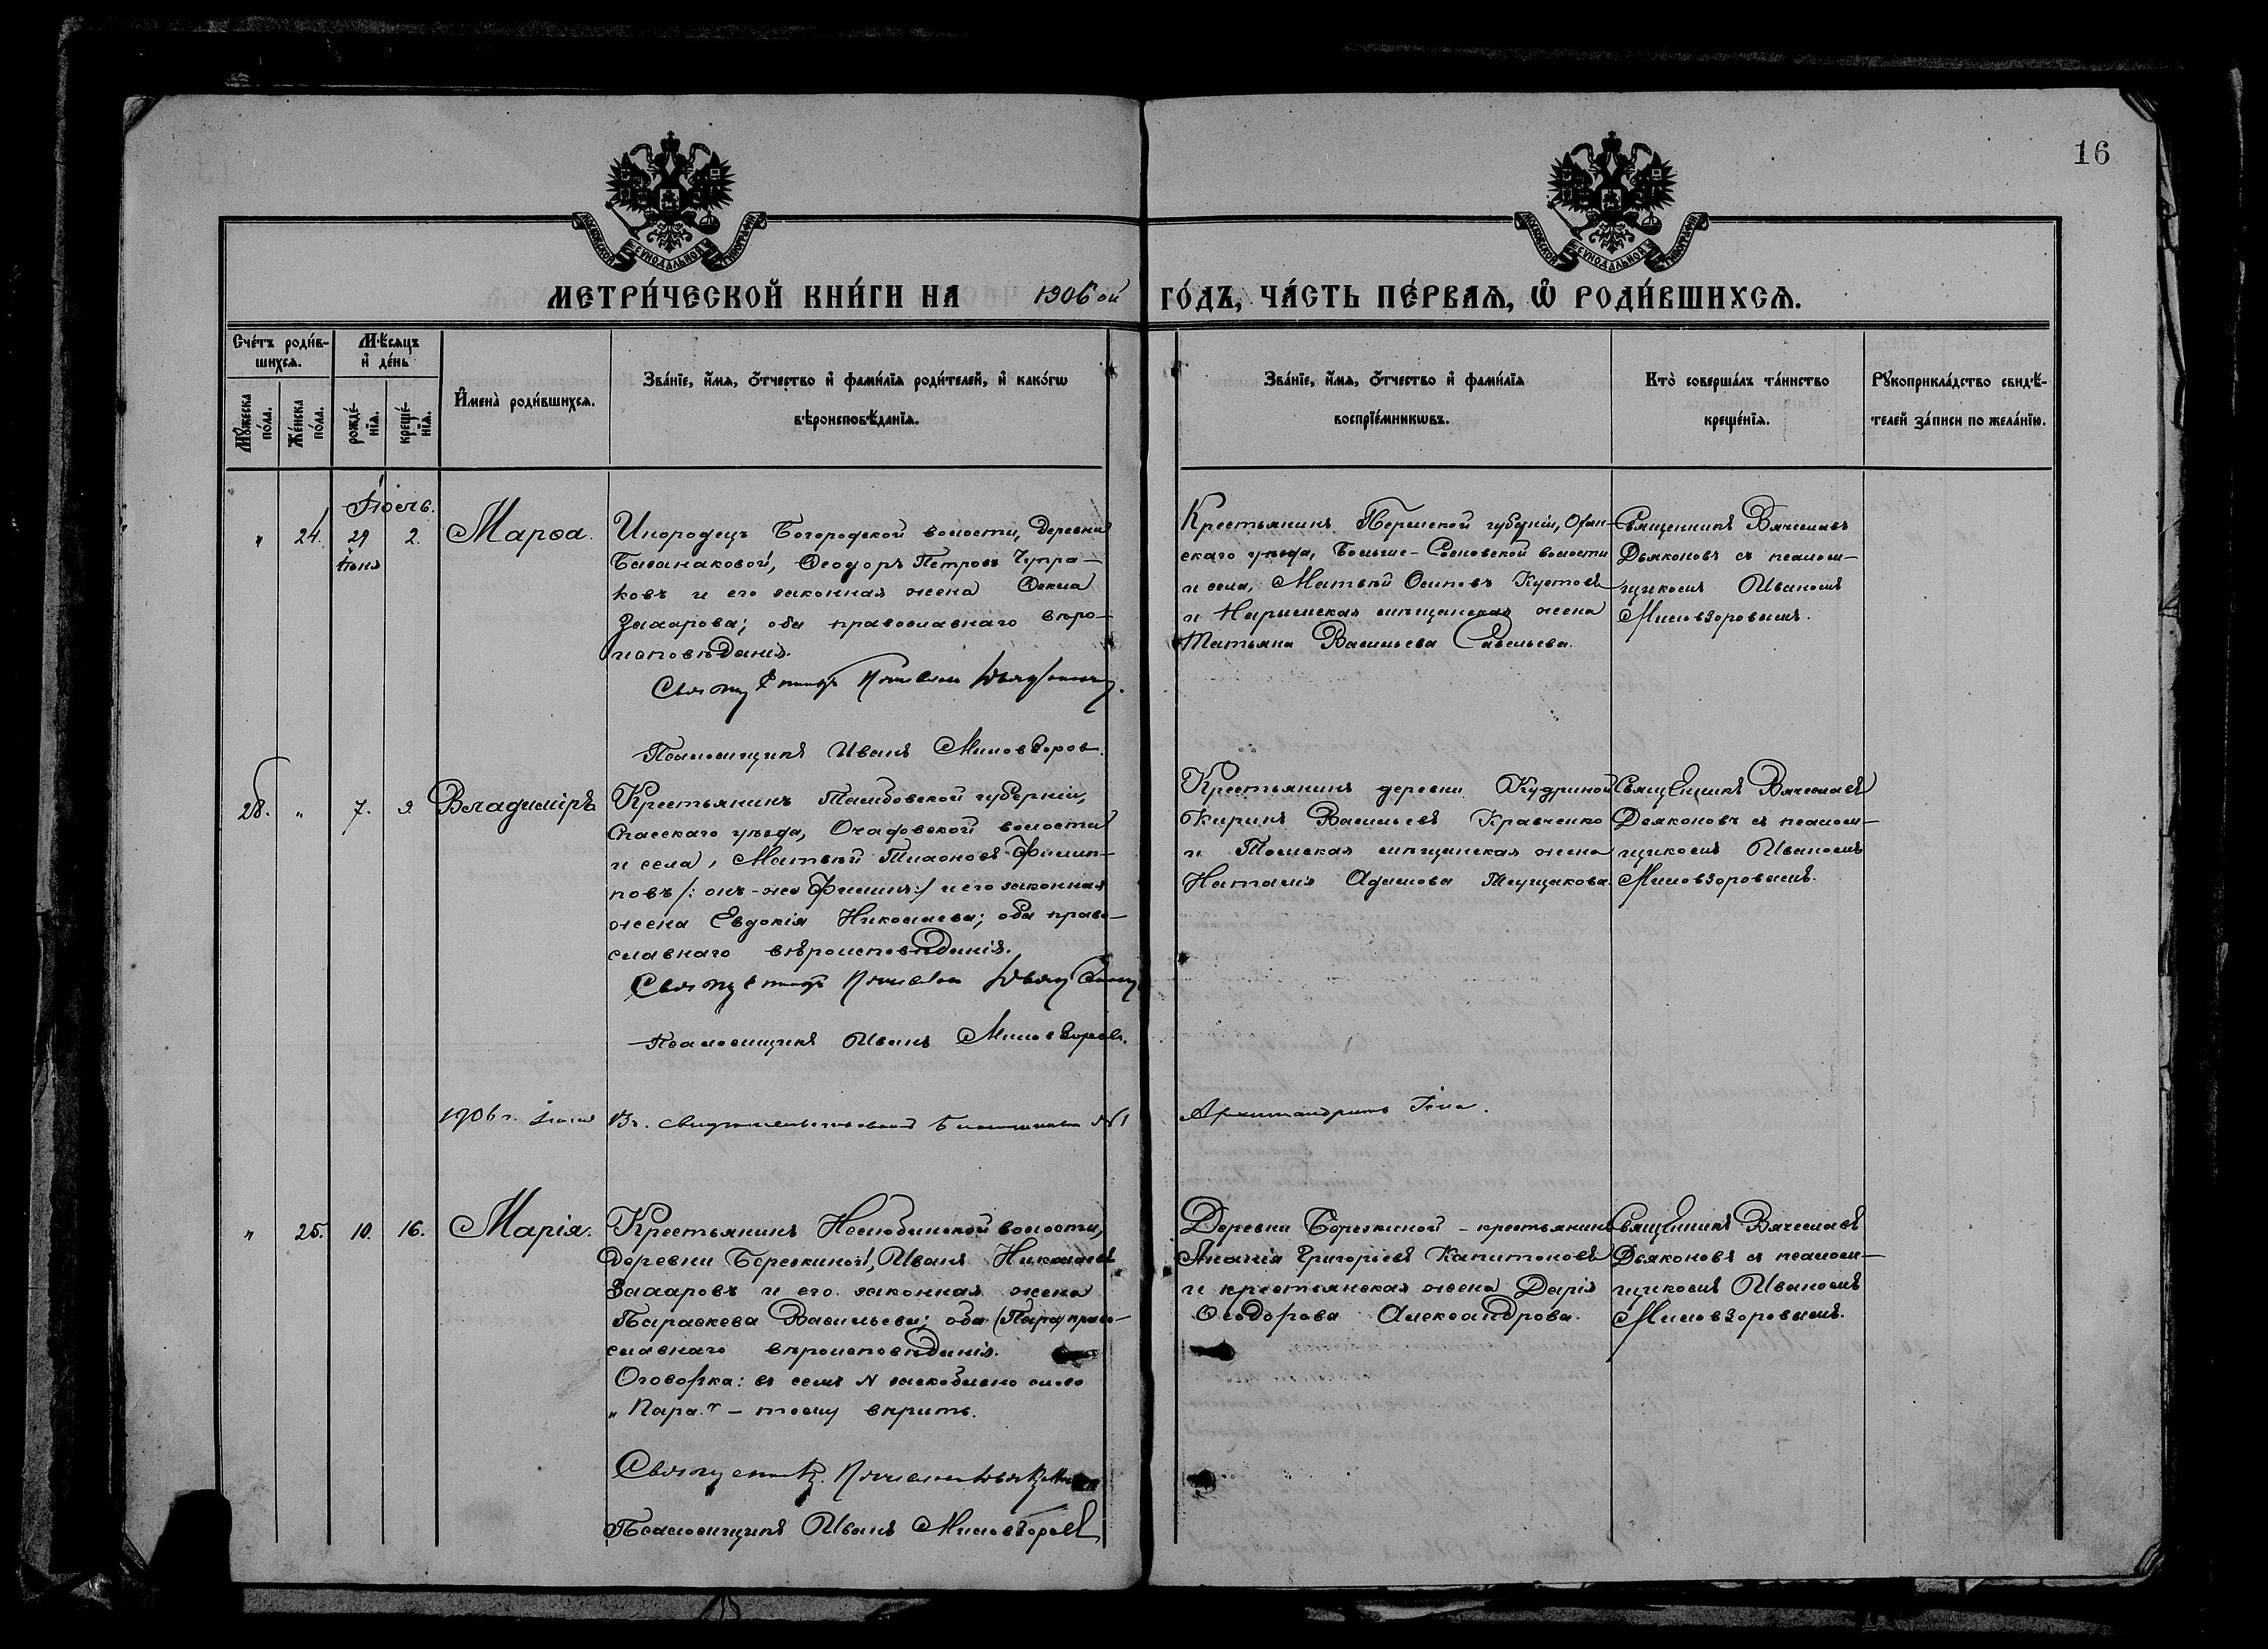 16
МОСКОВСКОЙ СѴНОДАЛЬНОЙ ТИПОГРАФІИ
МОСКОВСКОЙ СѴНОДАЛЬНОЙ ТИПОГРАФІИ
МЕТРИ́ЧЕСКОЙ КНИ́ГИ НА 1906 ой ГО́ДЪ, ЧА́СТЬ ПЕ́РВАѦ, Ѽ РОДИ́ВШИХСѦ.
Сче́тъ роди́в-
шихсѧ.
Мѣ́сѧцъ
и҆ де́нь
Мꙋ́жеска по́ла.
Же́нска по́ла.
рожде́-
нїѧ.
креще́-
нїѧ.
И҆мена̀ роди́вшихсѧ.
Зва́нїе, и҆́мѧ, ѻ҆́тчество и҆ фами́лїѧ роди́телей, и҆ како́гѡ
вѣроисповѣ́данїѧ.
Зва́нїе, и҆́мѧ, ѻ҆́тчество и҆ фами́лїѧ
воспрїе́мникѡвъ.
Кто̀ соверша́лъ та́инство
креще́нїѧ.
Рꙋкоприкла́дство свидѣ́-
телей за́писи по жела́нїю.
Іюль.
" 24. 29 2. Марѳа.
Іюня
Инородецъ Богородской волости, деревни
Басанаковой, Ѳеодоръ Петровъ Чупра-
ковъ и его законная жена Ѳекла
Захарова; оба православнаго вѣро-
исповѣданія.
Священникъ Вячеславъ Дьяконовъ.
Псаломщикъ Иванъ Миловзоровъ.
Крестьянинъ Пермской губерніи, Охан-
скаго уѣзда, Больше-Сосновской волости
и села, Матвѣй Осиповъ Кустовъ
и Нарымская мѣщанская жена
Татьяна Васильева Савельева.
Священникъ Вячеславъ
Дьяконовъ съ псалом-
щикомъ Иваномъ
Миловзоровымъ.
28. " 7. 9. Владиміръ
Крестьянинъ Тамбовской губерніи,
Спасскаго уѣзда, Очадовской волости
и села, Матвѣй Тихоновъ Филип-
повъ /: онъ-же Филинъ :/ и его законная
жена Евдокія Николаева; оба право-
славнаго вѣроисповѣданія.
Священникъ Вячеславъ Дьяконовъ
Псаломщикъ Иванъ Миловзоровъ.
Крестьянинъ деревни Кудриной
Киринъ Васильевъ Кравченко
и Томская мѣщанская жена
Наталія Адамова Тлущакова.
Священникъ Вячеславъ
Дьяконовъ съ псалом-
щикомъ Иваномъ
Миловзоровымъ.
1906 г. Свидѣтельствовалъ Благочинный №1
Архимандритъ Іона.
" 25. 10. 16. Марія.
Крестьянинъ Нелюбинской волости,
деревни Березкиной, Иванъ Николаевъ
Захаровъ и его законная жена
Параскева Васильева; оба (Пара) право-
славнаго вѣроисповѣданія.
Оговорка: въ семъ № выскоблено слово
„Пара." – тому вѣрить.
Священникъ Вячеславъ Дьяконовъ
Псаломщикъ Иванъ Миловзоровъ
Деревни Березкиной - крестьянинъ
Ананія Григорьевъ Капитоновъ
и крестьянская жена Дарія
Ѳеодорова Александрова.
Священникъ Вячеславъ
Дьяконовъ съ псалом-
щикомъ Иваномъ
Миловзоровымъ.